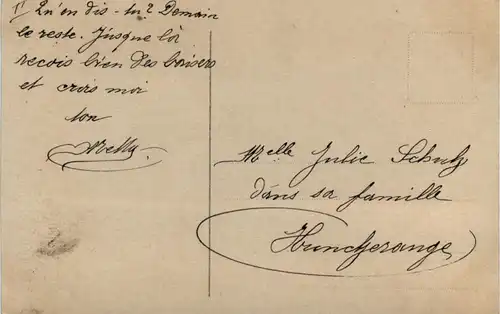 II Qu'en dis-tu? Demain
le reste. Jusque là
reçois bien des baisers
et crois moi
ton
Nelly
Melle Julie Schulz
dans sa famille
Huncherange